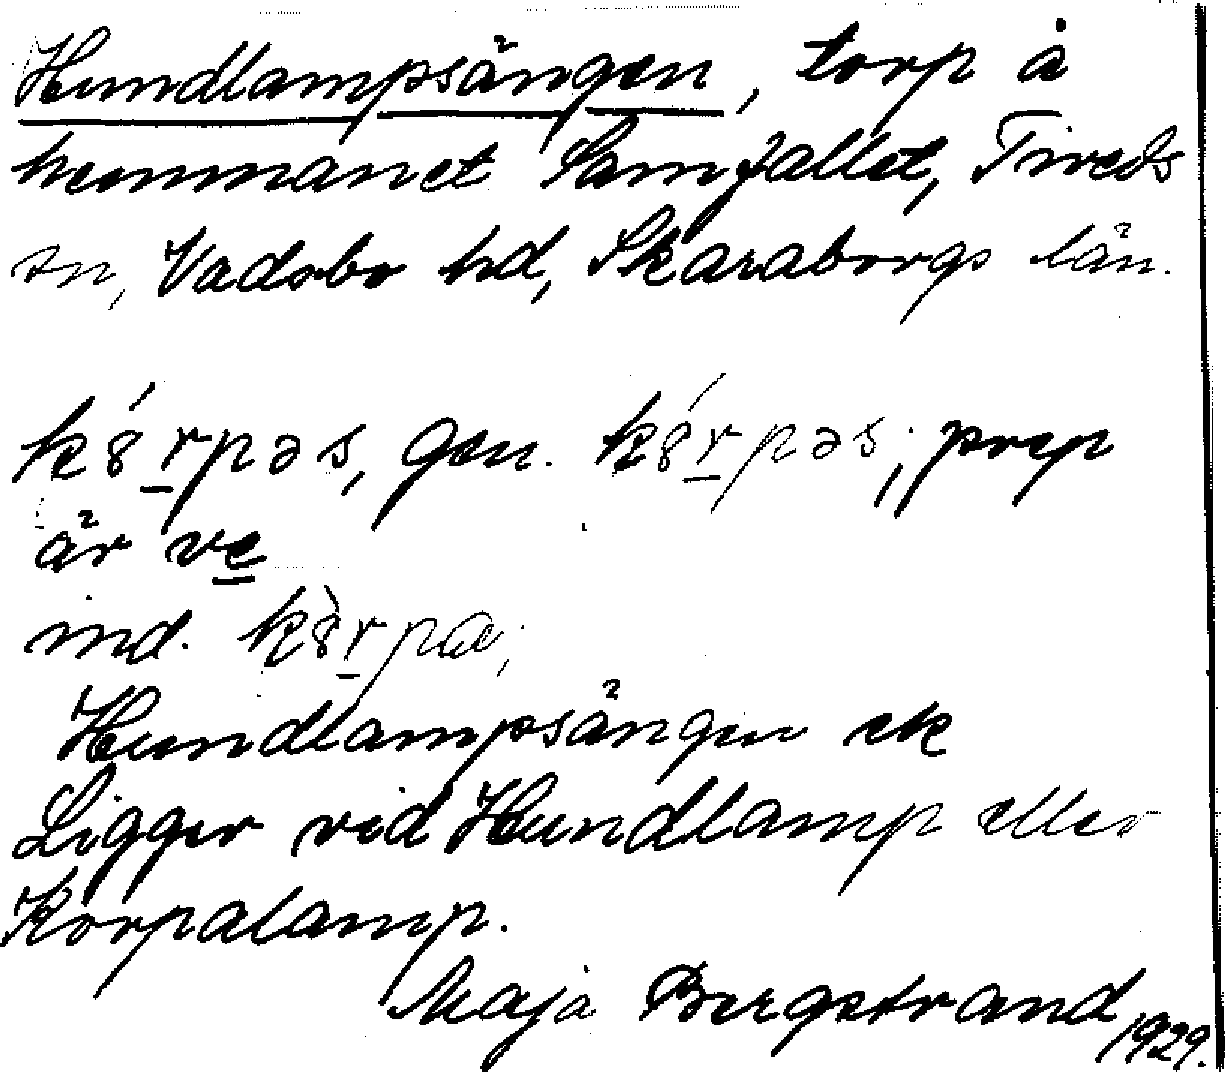 Hundlampsängen, torp å
hemmanet Samfallet, Tiveds
sn, Vadsbo hd, Skaraborgs län.
kȣ́r̲pəs, gen. kȣ́r̲pəs; prep
är ve̲
ind. kȣ̀r̲pa;
Hundlampsängen ek
Ligger vid Hundlamp eller
Korpalamp.
Maja Bergstrand 1929.